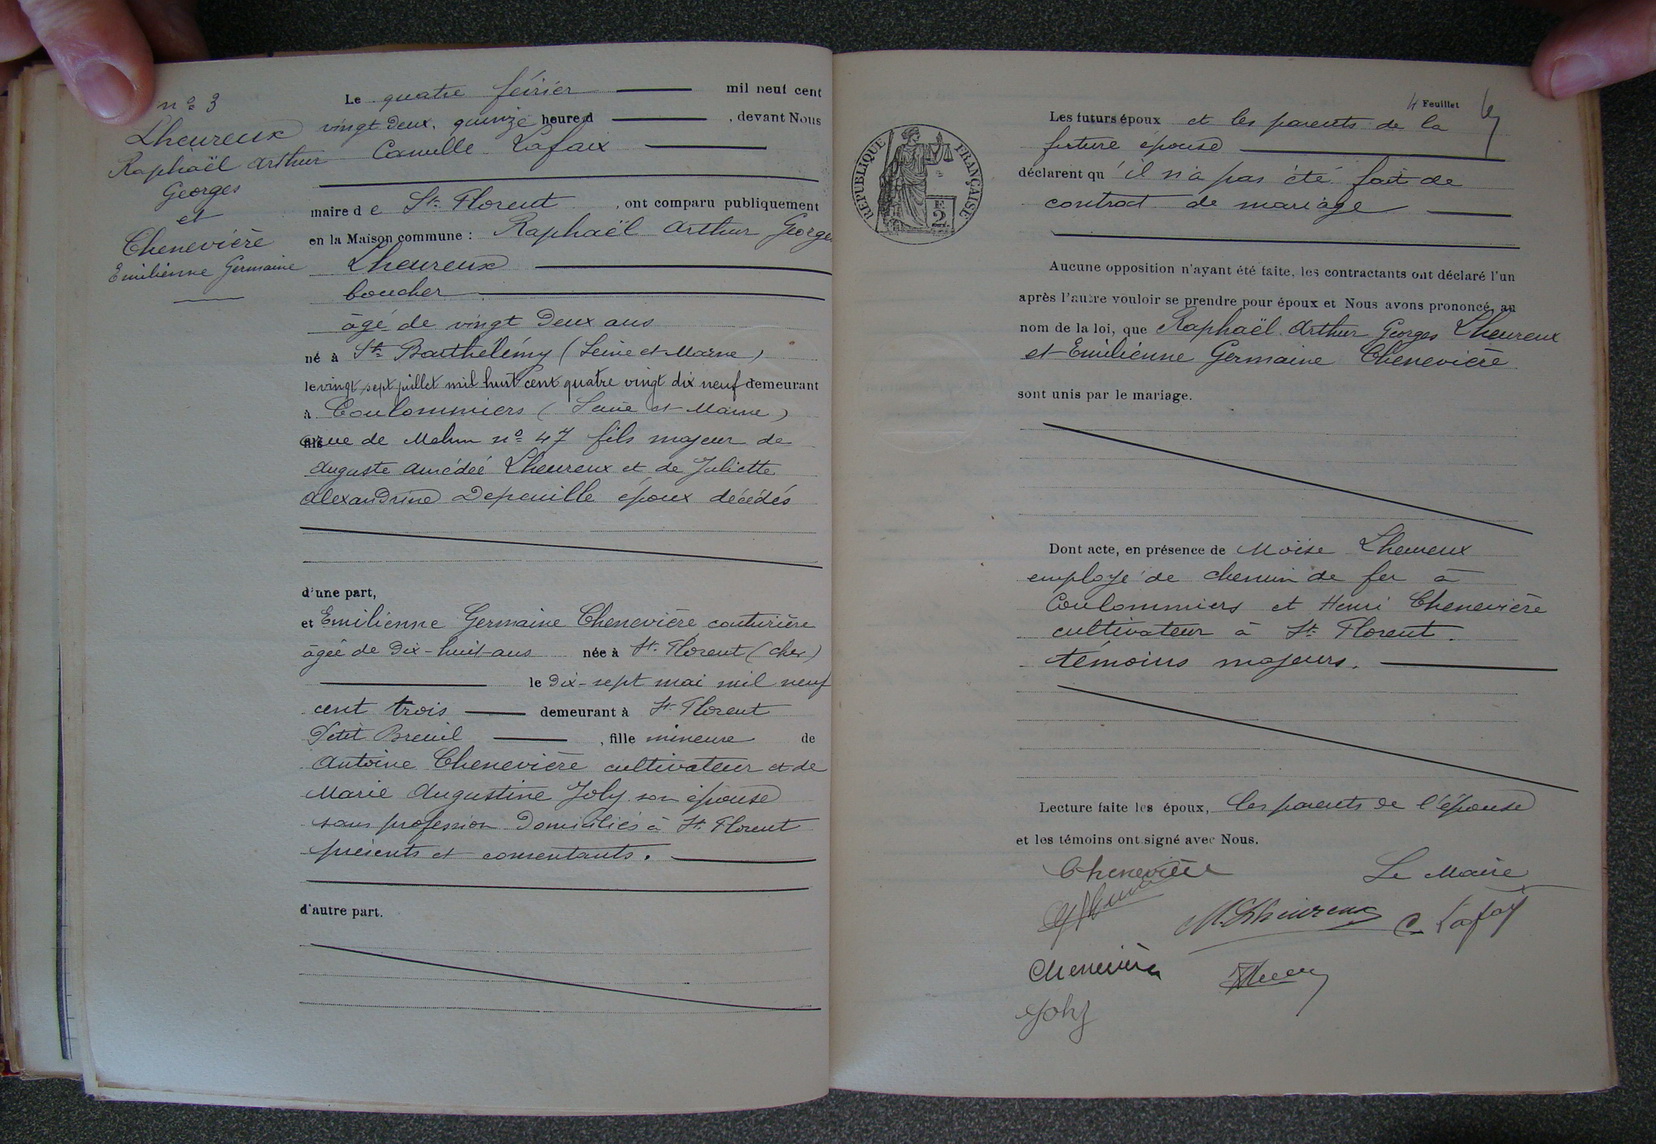 n° 3
Lheureux
Raphaël Arthur
Georges
et
Chenevière
Emilienne Germaine
Le quatre février mil neuf cent
vingt deux, quinze heures, devant Nous
Camille Lafaix
maire de St Florent, ont comparu publiquement
en la Maison commune : Raphaël Arthur Georges
Lheureux
boucher
âgé de vingt deux ans
né à St Barthélemy (Seine et Marne)
le vingt sept juillet mil huit cent quatre vingt dix neuf demeurant
à Coulommiers (Seine et Marne)
rue de Melun n° 47 fils majeur de
Auguste Amédée Lheureux et de Juliette
Alexandrine Depouille époux décédés
d'une part,
et Emilienne Germaine Chenevière couturière
âgée de dix-huit ans née à St Florent (Cher)
le dix-sept mai mil neuf
cent trois demeurant à St Florent
Petit Breuil, fille mineure de
Antoine Chenevière cultivateur et de
Marie Augustine Joly son épouse
sans profession domiciliés à St Florent
présents et consentants.
d'autre part.
4 Feuillet
RÉPUBLIQUE FRANÇAISE
2
Les futurs époux et les parents de la
future épouse
déclarent qu'il n'a pas été fait de
contrat de mariage
Aucune opposition n'ayant été faite, les contractants ont déclaré l'un
après l'autre vouloir se prendre pour époux et Nous avons prononcé, au
nom de la loi, que Raphaël Arthur Georges Lheureux
et Emilienne Germaine Chenevière
sont unis par le mariage.
Dont acte, en présence de Moïse Lheureux
employé de chemin de fer à
Coulommiers et Henri Chenevière
cultivateur à St Florent.
témoins majeurs.
Lecture faite les époux, les parents de l'épouse
et les témoins ont signé avec Nous.
Chenevière Le Maire
M. Lheureux C. Lafaix
Chenevière
Joly